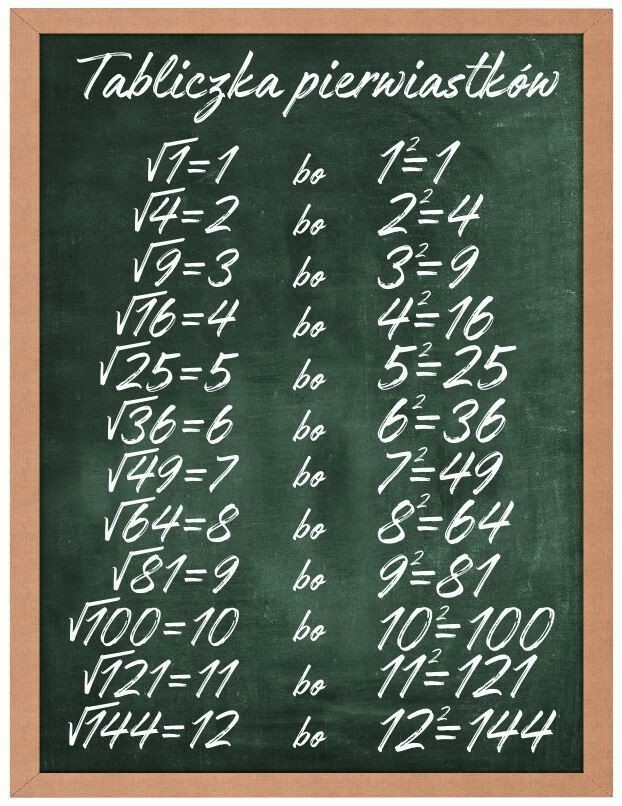 Tabliczka pierwiastków
√1=1 bo 1²=1
√4=2 bo 2²=4
√9=3 bo 3²=9
√16=4 bo 4²=16
√25=5 bo 5²=25
√36=6 bo 6²=36
√49=7 bo 7²=49
√64=8 bo 8²=64
√81=9 bo 9²=81
√100=10 bo 10²=100
√121=11 bo 11²=121
√144=12 bo 12²=144